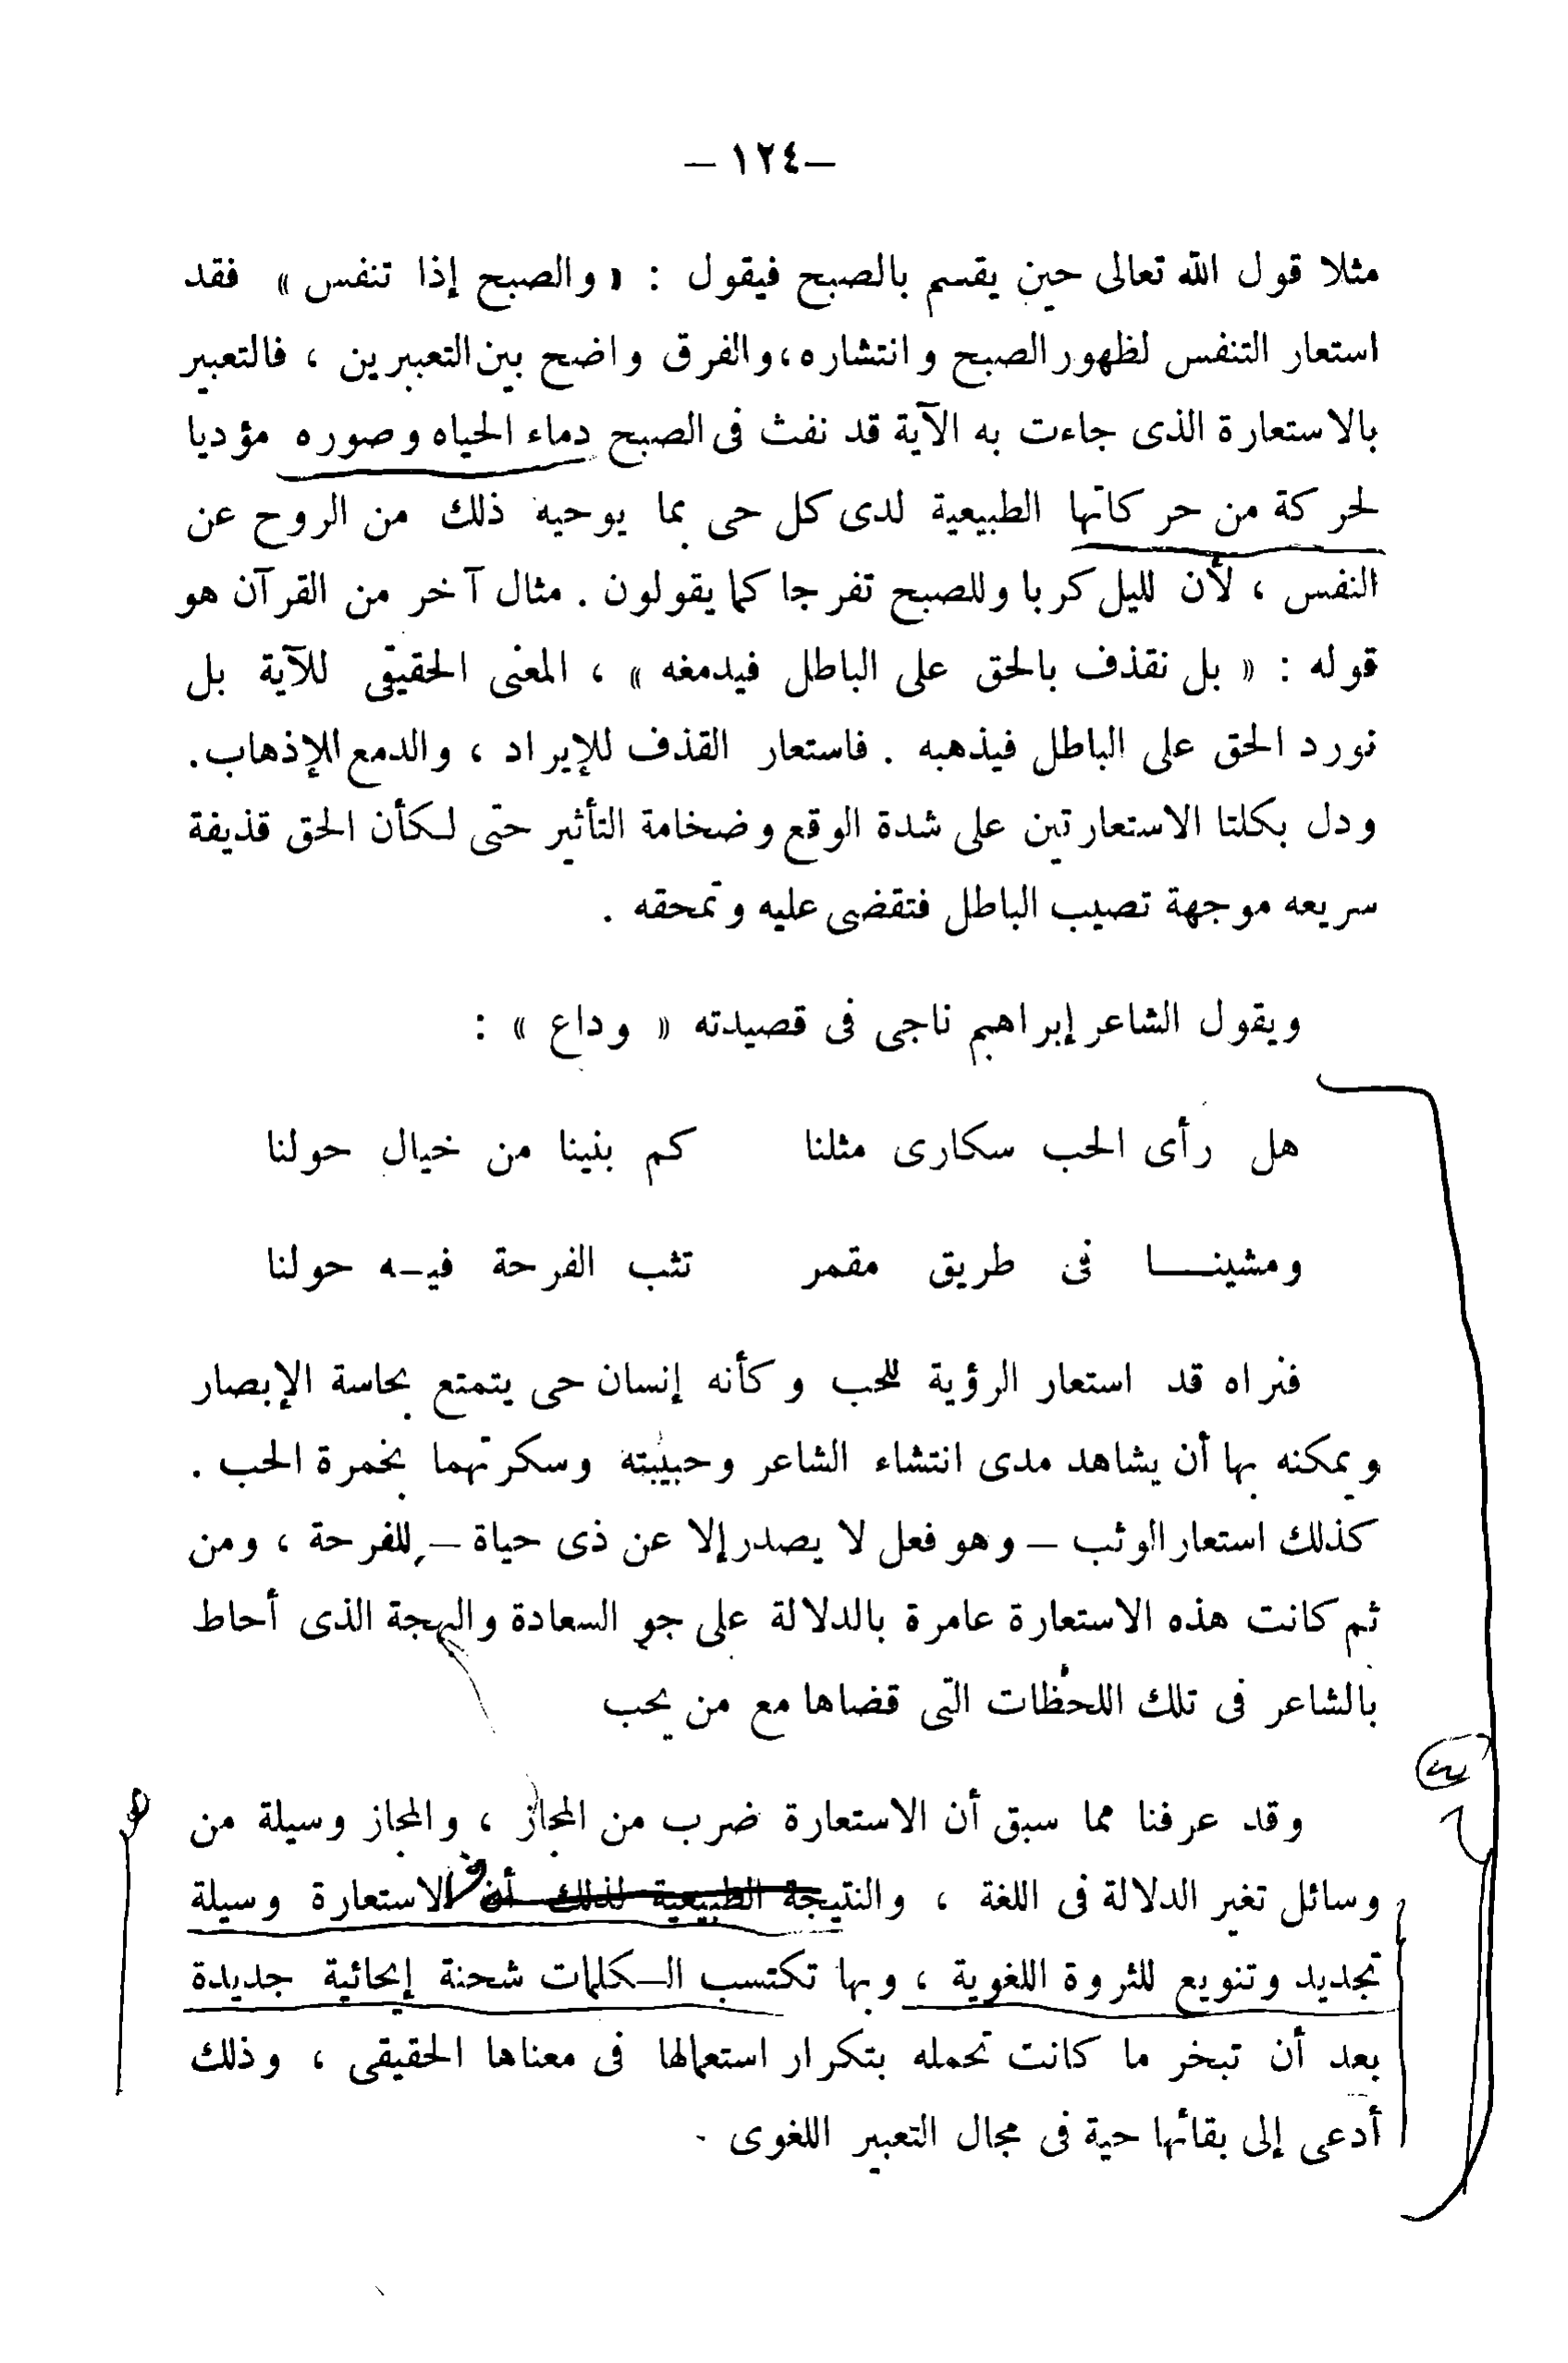 — ١٢٤ —
مثلا قول الله تعالى حين يقسم بالصبح فيقول : « والصبح إذا تنفس » فقد
استعار التنفس لظهور الصبح وانتشاره، والفرق واضح بين التعبيرين ، فالتعبير
بالاستعارة الذى جاءت به الآية قد نفث فى الصبح دماء الحياه وصوره مؤديا
لحركة من حركاتها الطبيعية لدى كل حى بما يوحيه ذلك من الروح عن
النفس ، لأن لليل كربا وللصبح تفرجا كما يقولون . مثال آخر من القرآن هو
قوله : « بل نقذف بالحق على الباطل فيدمغه » ، المعنى الحقيقى للآية بل
نورد الحق على الباطل فيذهبه . فاستعار القذف للإيراد ، والدمع للإذهاب .
ودل بكلتا الاستعارتين على شدة الوقع وضخامة التأثير حتى لكأن الحق قذيفة
سريعه موجهة تصيب الباطل فتقضى عليه وتمحقه .
ويقول الشاعر إبراهيم ناجى فى قصيدته « وداع » :
هل رأى الحب سكارى مثلنا كم بنينا من خيال حولنا
ومشينــا فى طريق مقمر تثب الفرحة فيـه حولنا
فنراه قد استعار الرؤية للحب وكأنه إنسان حى يتمتع بحاسة الإبصار
ويمكنه بها أن يشاهد مدى انتشاء الشاعر وحبيبته وسكرتهما بخمرة الحب .
كذلك استعار الوثب — وهو فعل لا يصدر إلا عن ذى حياة — للفرحة ، ومن
ثم كانت هذه الاستعارة عامرة بالدلالة على جو السعادة والبهجة الذى أحاط
بالشاعر فى تلك اللحظات التى قضاها مع من يحب
وقد عرفنا مما سبق أن الاستعارة ضرب من المجاز ، والمجاز وسيلة من
وسائل تغير الدلالة فى اللغة ، والنتيجة الطبيعية لذلك أن الاستعارة وسيلة
تجديد وتنويع للثروة اللغوية ، وبها تكتسب الـكلمات شحنة إيحائية جديدة
بعد أن تبخر ما كانت تحمله بتكرار استعمالها فى معناها الحقيقى ، وذلك
أدعى إلى بقائها حية فى مجال التعبير اللغوى .